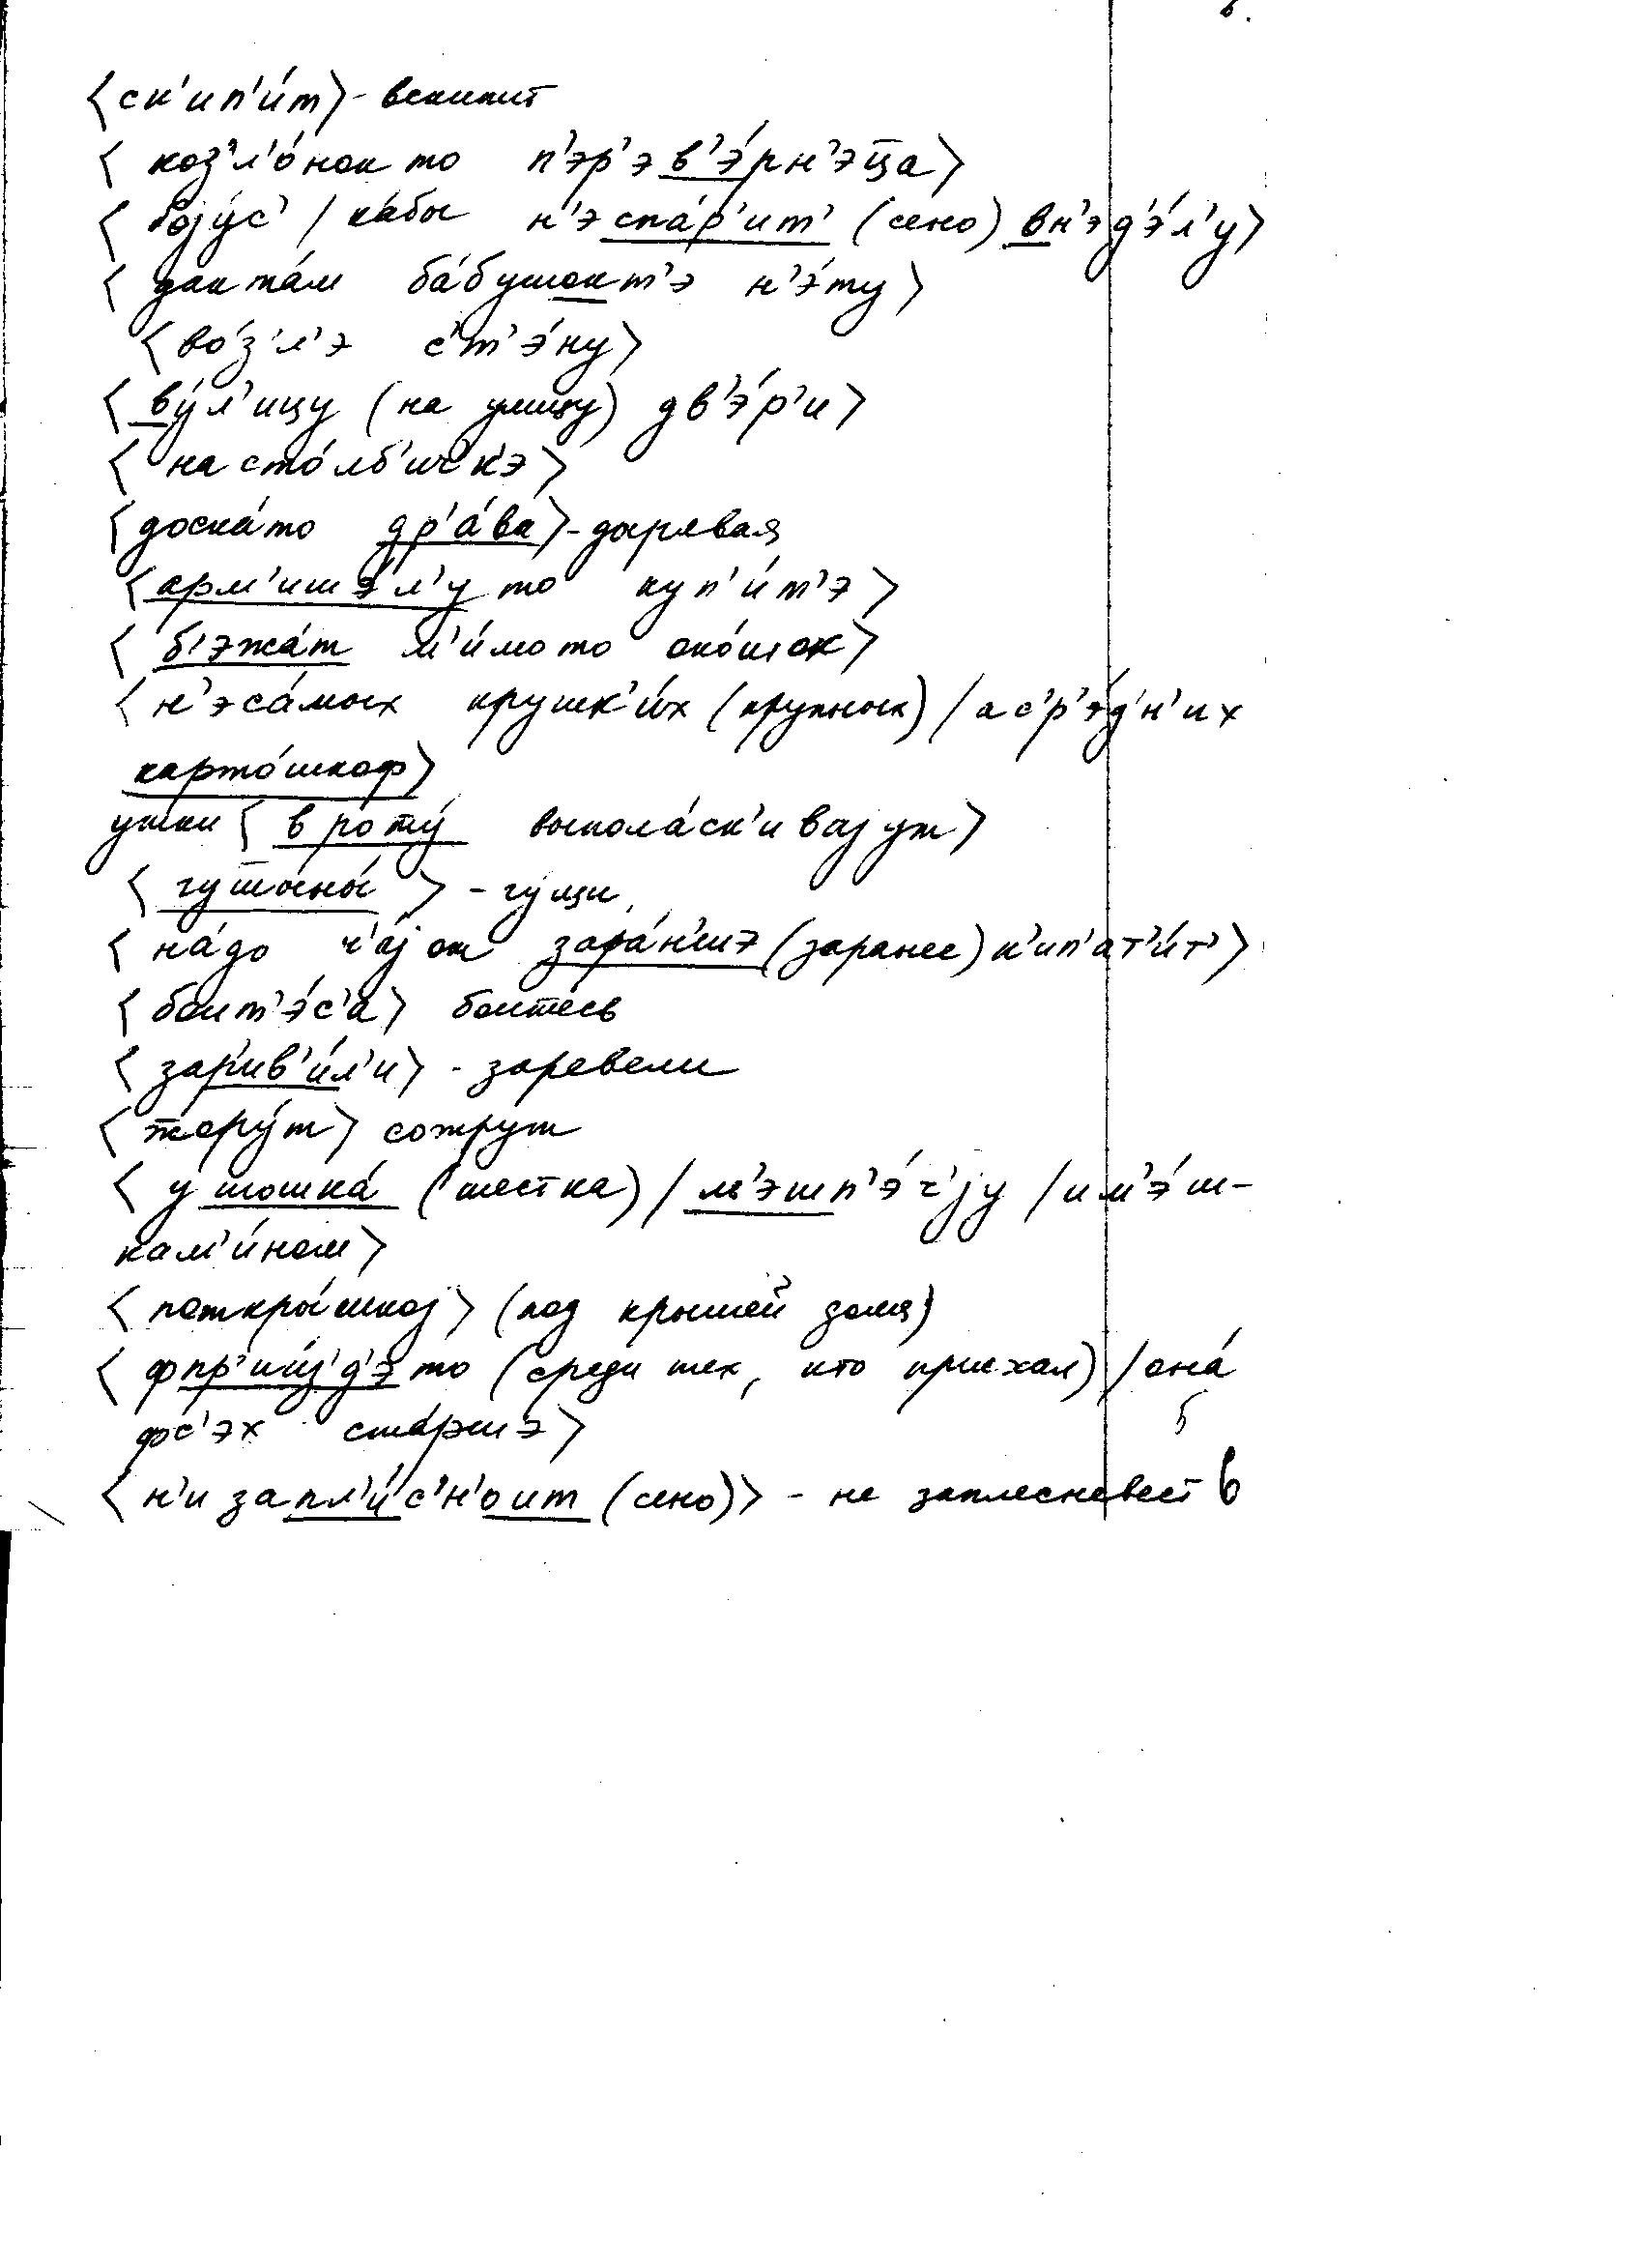 6.
⟨ск'ип'и́т⟩ - вскипит
⟨ коз'л'о́нок то п'эр'э в'э́рн'эц̅а⟩
⟨ боjу́с' / ка́бы н'э спа́р'ит' (сено) вн'эд'э́л'у⟩
⟨ дак та́м ба́бушокт'э н'э́ту⟩
⟨во́з'л'э с'т'э́ну⟩
⟨ ву́л'ицу (на улицу) дв'э́р'и⟩
⟨ на сто́лб'ич'к'э⟩
⟨доска́то др'а́ва⟩ - дырявая
⟨арм'ишэ́л'у то куп'и́т'э⟩
⟨ б'эжа́т м'и́мо то око́шок⟩
⟨ н'э са́мых крушк'и́х (крупных) / а с'р'э́д'н'их
карто́шкоф⟩
утки ⟨ в роту́ выпола́ск'иваjут⟩
⟨ гуш̅ыны́ ⟩ - гу́щи
⟨ на́до ч'аjок зара́н'шэ (заранее) к'ип'ат'и́т'⟩
⟨ боит'э́с'а⟩ боитесь
⟨ зар'ив'и́л'и⟩ - заревели
⟨ т̅ору́т⟩ сотрут
⟨ у шошка́ (шестка) / м'эшп'э́ч'jу / и м'э́ш-
кам'и́ном⟩
⟨ поткры́шкоj⟩ (под крышей дома)
⟨ фпр'ии́з'д'э то (среди тех, кто приехал) / она́
фс'эх ста́ршэ⟩
⟨ н'и запл'и́с'н'оит (сено)⟩ - не заплесневеет